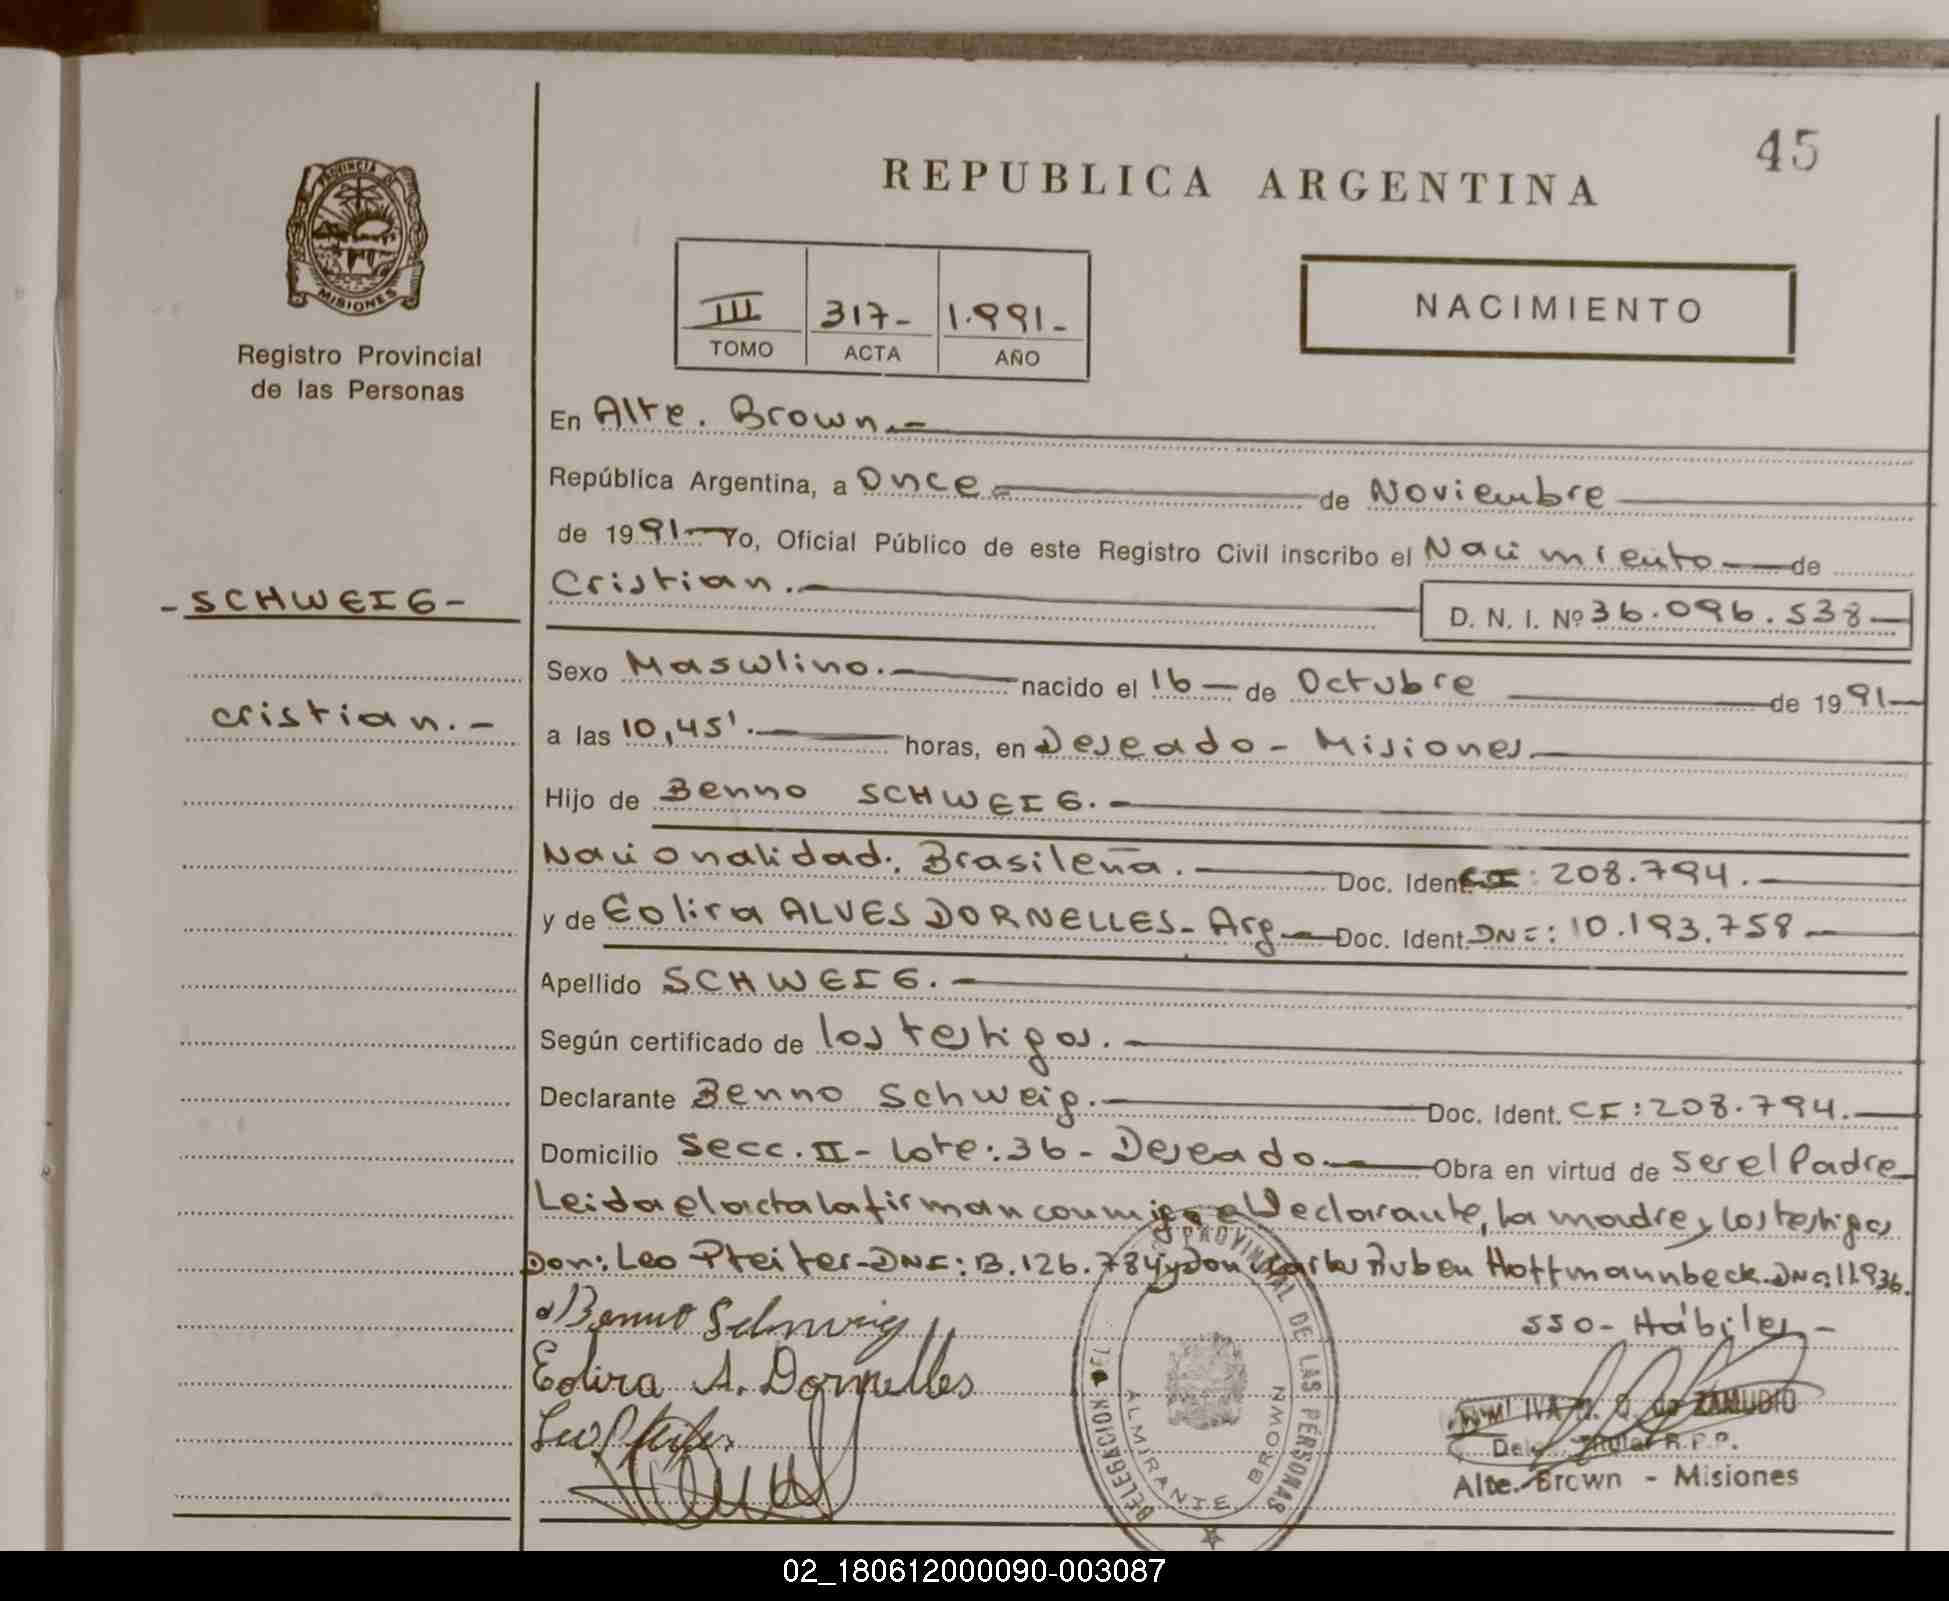 45
REPUBLICA ARGENTINA
PROVINCIA DE
MISIONES
Registro Provincial
de las Personas
III 317- 1.991-
TOMO ACTA AÑO
NACIMIENTO
En Alte. Brown.-
República Argentina, a Once de Noviembre
de 1991 Yo, Oficial Público de este Registro Civil inscribo el Nacimiento de
Cristian. D. N. I. Nº 36.096.538
-SCHWEIG-
cristian.-
Sexo Masculino. nacido el 16 de Octubre de 1991
a las 10,45'. horas, en Deseado - Misiones
Hijo de Benno SCHWEIG.
Nacionalidad: Brasileña. Doc. Ident. CI: 208.794.
y de Eolira ALVES DORNELLES- Arg. Doc. Ident. DNI: 10.193.758
Apellido SCHWEIG.
Según certificado de los testigos.
Declarante Benno Schweig. Doc. Ident. CI: 208.794.
Domicilio Secc. II - Lote: 36 - Deseado. Obra en virtud de ser el Padre
Leida el acta la firman conmigo el Declarante, la madre y los testigos
Don: Leo Pfeifer - DNI: 13.126.784 y don Carlos Ruben Hoffmannbeck. DNI: 11.936.
550- Hábiles -
Benno Schweig
Eolira A. Dornelles
Leo Pfeifer
PROVINCIAL DE LAS PERSONAS
DELEGACION
ALMIRANTE BROWN
de ZAMUDIO
Titular R.P.P.
Alte. Brown - Misiones
02_180612000090-003087